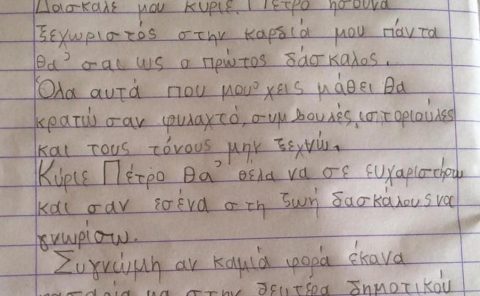 Δάσκαλε μου κύριε Πέτρο ήσουνα
ξεχωριστός στην καρδιά μου πάντα
θα' σαι ως ο πρώτος δάσκαλος.
Όλα αυτά που μου' χεις μάθει θα
κρατώ σαν φυλαχτό, συμβουλές, ιστοριούλες
και τους τόνους μην ξεχνώ.
Κύριε Πέτρο θα' θελα να σε ευχαριστήσω
και σαν εσένα στη ζωή δασκάλους να
γνωρίσω.
Συγνώμη αν καμιά φορά έκανα
στην δευτέρα δημοτικού